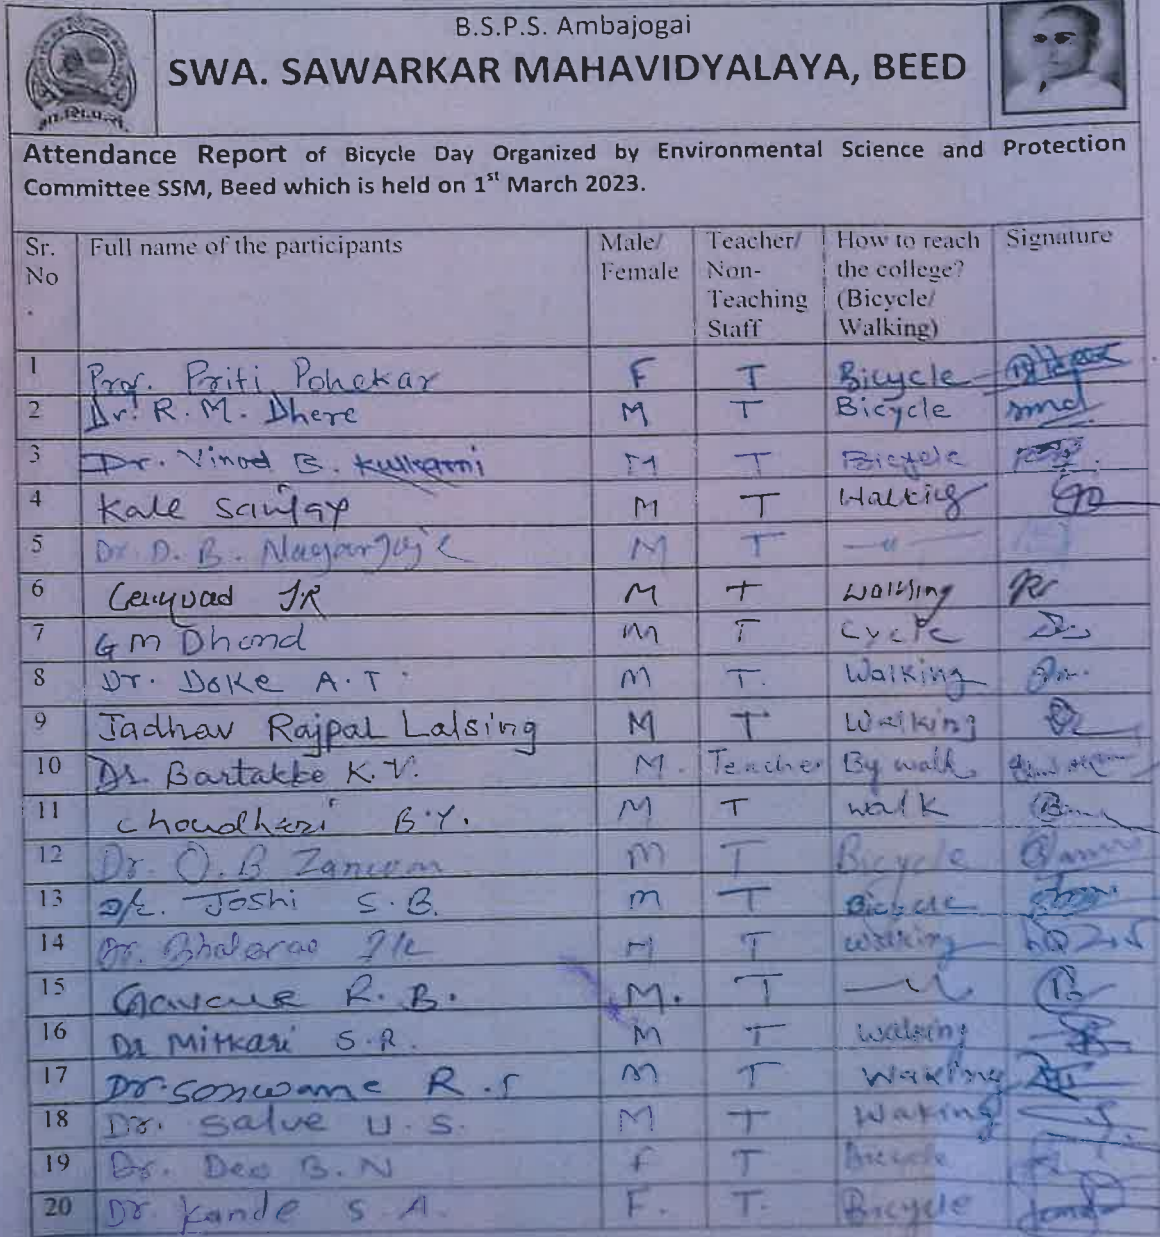 B.S.P.S. Ambajogai
SWA. SAWARKAR MAHAVIDYALAYA, BEED
Attendance Report of Bicycle Day Organized by Environmental Science and Protection
Committee SSM, Beed which is held on 1st March 2023.
Sr. No. Full name of the participants Male/ Female Teacher/ Non-Teaching Staff How to reach the college? (Bicycle/ Walking) Signature
1 Prof. Priti Pohekar F T Bicycle
2 Dr. R. M. Dhere M T Bicycle
3 Dr. Vinod B. Kulkarni M T Bicycle
4 Kale Sanjay M T Walking
5 Dr. D. B. M T —〃—
6 JR M T walking
7 G M Dhond M T Cycle
8 Dr. Doke A.T. M T. Walking
9 Jadhav Rajpal Lalsing M T Walking
10 Dr. Bartakke K.V. M. Teacher By walk
11 Choudhari B.Y. M T walk
12 Dr. O. B M T Bicycle
13 Joshi S.B. M T Bicycle
14 Dr. Bhalerao M T walking
15 R. B. M. T —〃—
16 Dr Mitkari S.R. M T walking
17 Dr. Sonwame R.S M T Waking
18 Dr. Salve U.S. M T Waking
19 Dr. Deo B.N F T Bicycle
20 Dr. Kande S A. F. T. Bicycle